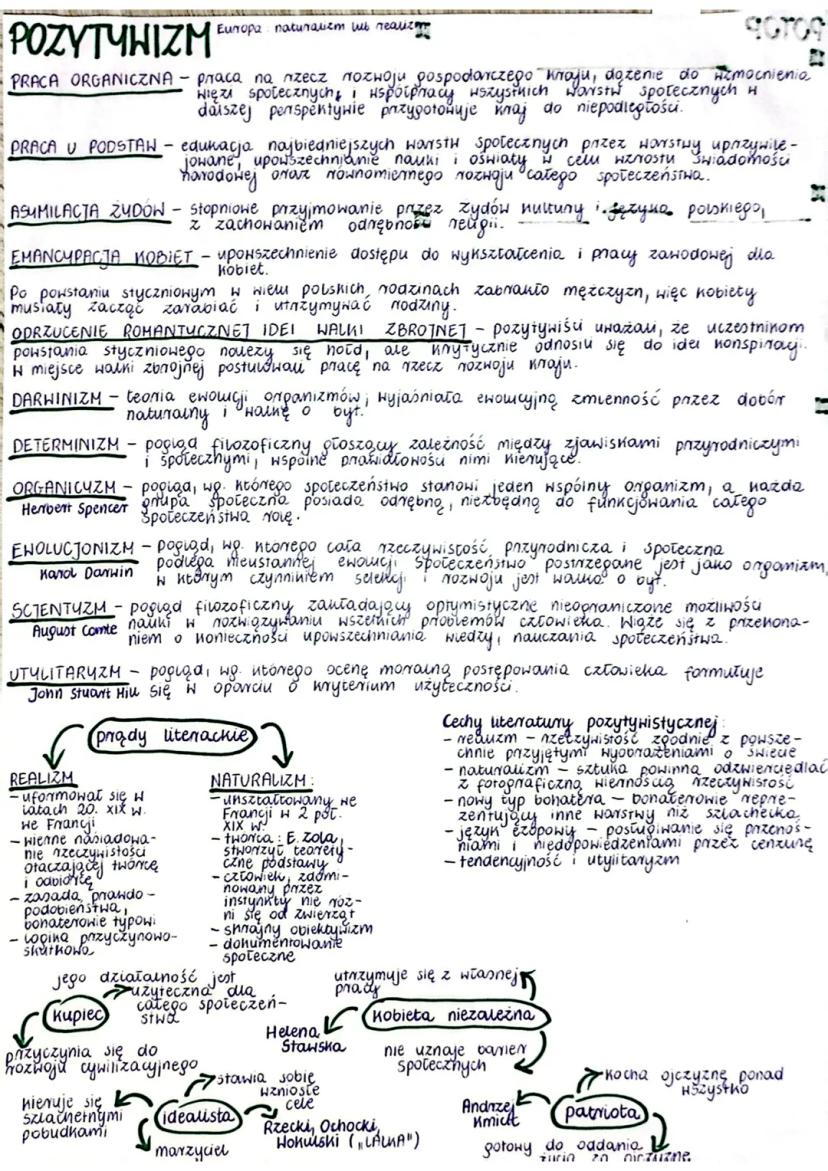 POZYTYWIZM Europa: naturalizm lub realizm
POTOP
PRACA ORGANICZNA – praca na rzecz rozwoju gospodarczego kraju, dążenie do wzmocnienia
więzi społecznych i współpracy wszystkich warstw społecznych w
dalszej perspektywie przygotowuje kraj do niepodległości.
PRACA U PODSTAW – edukacja najbiedniejszych warstw społecznych przez warstwy uprzywile-
jowane, upowszechnianie nauki i oświaty w celu wzrostu świadomości
narodowej oraz równomiernego rozwoju całego społeczeństwa.
ASYMILACJA ŻYDÓW – stopniowe przyjmowanie przez Żydów kultury i języka polskiego,
z zachowaniem odrębności religii.
EMANCYPACJA KOBIET – upowszechnienie dostępu do wykształcenia i pracy zawodowej dla
kobiet.
Po powstaniu styczniowym w wielu polskich rodzinach zabrakło mężczyzn, więc kobiety
musiały zacząć zarabiać i utrzymywać rodziny.
ODRZUCENIE ROMANTYCZNEJ IDEI WALKI ZBROJNEJ – pozytywiści uważali, że uczestnikom
powstania styczniowego należy się hołd, ale krytycznie odnosili się do idei konspiracji.
W miejsce walki zbrojnej postulowali pracę na rzecz rozwoju kraju.
DARWINIZM – teoria ewolucji organizmów; wyjaśniała ewolucyjną zmienność przez dobór
naturalny i walkę o byt.
DETERMINIZM – pogląd filozoficzny głoszący zależność między zjawiskami przyrodniczymi
i społecznymi, wspólne prawidłowości nimi kierujące.
ORGANICYZM – pogląd, wg. którego społeczeństwo stanowi jeden wspólny organizm, a każda
Herbert Spencer grupa społeczna posiada odrębną, niezbędną do funkcjonowania całego
społeczeństwa rolę.
EWOLUCJONIZM – pogląd, wg. którego cała rzeczywistość przyrodnicza i społeczna
Karol Darwin podlega nieustannej ewolucji. Społeczeństwo postrzegane jest jako organizm,
w którym czynnikiem selekcji i rozwoju jest walka o byt.
SCJENTYZM – pogląd filozoficzny zakładający optymistyczne nieograniczone możliwości
August Comte nauki w rozwiązywaniu wszelkich problemów człowieka. Wiąże się z przekona-
niem o konieczności upowszechniania wiedzy, nauczania społeczeństwa.
UTYLITARYZM – pogląd, wg. którego ocenę moralną postępowania człowieka formułuje
John Stuart Mill się w oparciu o kryterium użyteczności.
prądy literackie
REALIZM
– uformował się w
latach 20. XIX w.
we Francji
– wierne naśladowa-
nie rzeczywistości
otaczającej twórcę
i odbiorcę
– zasada prawdo-
podobieństwa,
bohaterowie typowi
– logika przyczynowo-
skutkowa
NATURALIZM:
– ukształtowany we
Francji w 2 poł.
XIX w.
– twórca: E. Zola,
stworzył teorety-
czne podstawy
– człowiek, zdomi-
nowany przez
instynkty nie róż-
ni się od zwierząt
– skrajny obiektywizm
– dokumentowanie
społeczne
Cechy literatury pozytywistycznej:
– realizm – rzeczywistość zgodnie z powsze-
chnie przyjętymi wyobrażeniami o świecie
– naturalizm – sztuka powinna odzwierciedlać
z fotograficzną wiernością rzeczywistość
– nowy typ bohatera – bohaterowie repre-
zentujący inne warstwy niż szlachecka
– język ezopowy – posługiwanie się przenoś-
niami i niedopowiedzeniami przez cenzurę
– tendencyjność i utylitaryzm
jego działalność jest
użyteczna dla
całego społeczeń-
stwa
kupiec
przyczynia się do
rozwoju cywilizacyjnego
utrzymuje się z własnej
pracy
kobieta niezależna
Helena
Stawska
nie uznaje barier
społecznych
stawia sobie
wzniosłe
cele
kieruje się
szlachetnymi
pobudkami
idealista
Rzecki, Ochocki,
Wokulski („LALKA")
marzyciel
kocha ojczyznę ponad
wszystko
Andrzej
Kmicic
patriota
gotowy do oddania
życia za ojczyznę